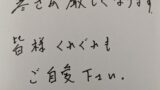 寒さも厳しくなります
皆様くれぐれも
ご自愛下さい.